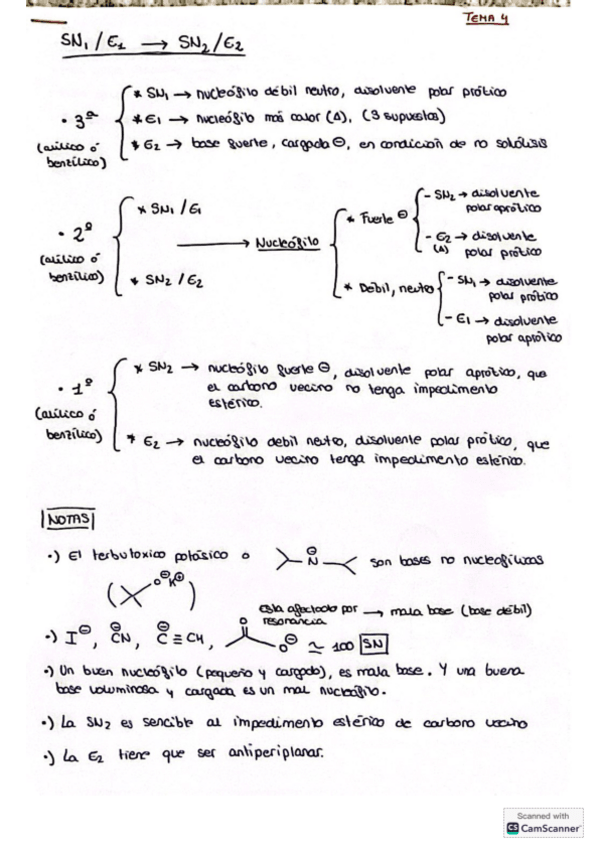 TEMA 4
SN1/E1 → SN2/E2
• 3ª (alílico ó benzílico)
* SN1 → nucleófilo débil neutro, disolvente polar prótico
* E1 → nucleófilo más calor (Δ), (3 supuestos)
* E2 → base fuerte, cargada ⊖, en condición de no solólisis
• 2º (alílico ó benzílico)
* SN1/E1
* SN2/E2
→ Nucleófilo
* Fuerte ⊖
- SN2 → disolvente
polar aprótico
- E2 → disolvente
(Δ) polar prótico
* Débil, neutro
- SN1 → disolvente
polar prótico
- E1 → disolvente
polar aprótico
• 1º (alílico ó benzílico)
* SN2 → nucleófilo fuerte ⊖, disolvente polar aprótico, que
el carbono vecino no tenga impedimento
estérico.
* E2 → nucleófilo debil neutro, disolvente polar prótico, que
el carbono vecino tenga impedimento estérico.
NOTAS
•) El terbutoxico potásico o N⊖ son bases no nucleofílicas
(O⊖K⊕)
Esta afectado por resonancia → mala base (base débil)
•) I⊖, ⊖CN, ⊖C≡CH, O O⊖ ≃ 100 SN
•) Un buen nucleófilo (pequeño y cargado), es mala base. Y una buena
base voluminosa y cargada es un mal nucleófilo.
•) La SN2 es sencible al impedimento estérico de carbono vecino
•) La E2 tiene que ser antiperiplanar.
Scanned with
CS CamScanner